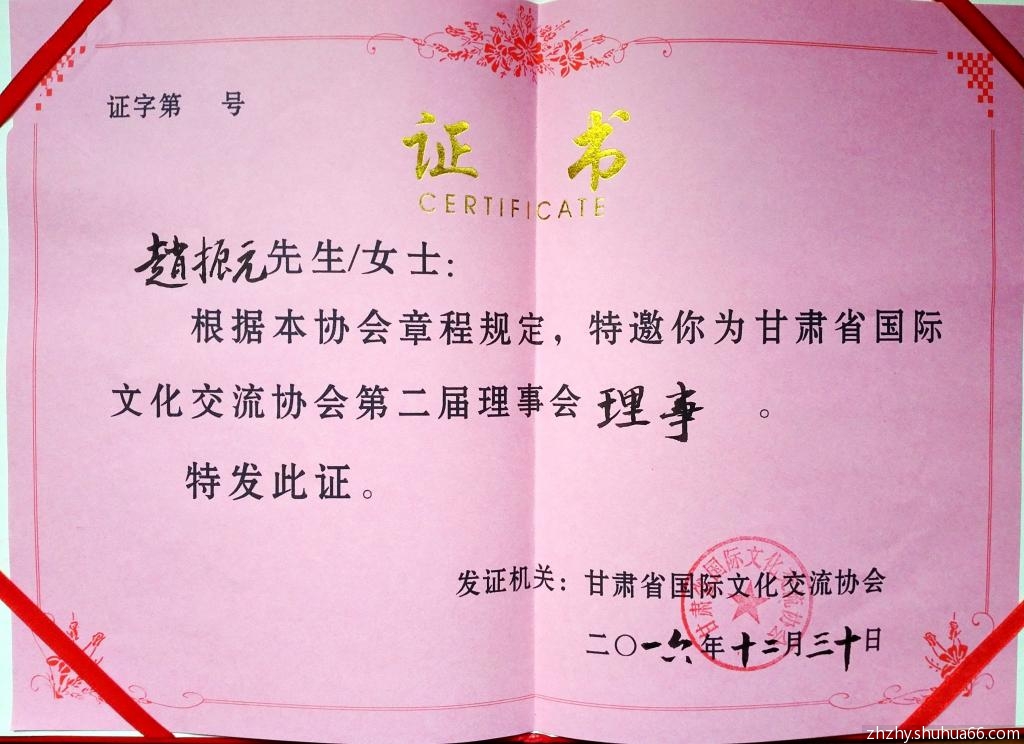 证字第 号
证书
CERTIFICATE
趙振元先生/女士：
根据本协会章程规定，特邀你为甘肃省国际
文化交流协会第二届理事会理事。
特发此证。
发证机关：甘肃省国际文化交流协会
甘肃省国际文化交流协会
二〇一六年十二月三十日
zhzhy.shuhua66.com